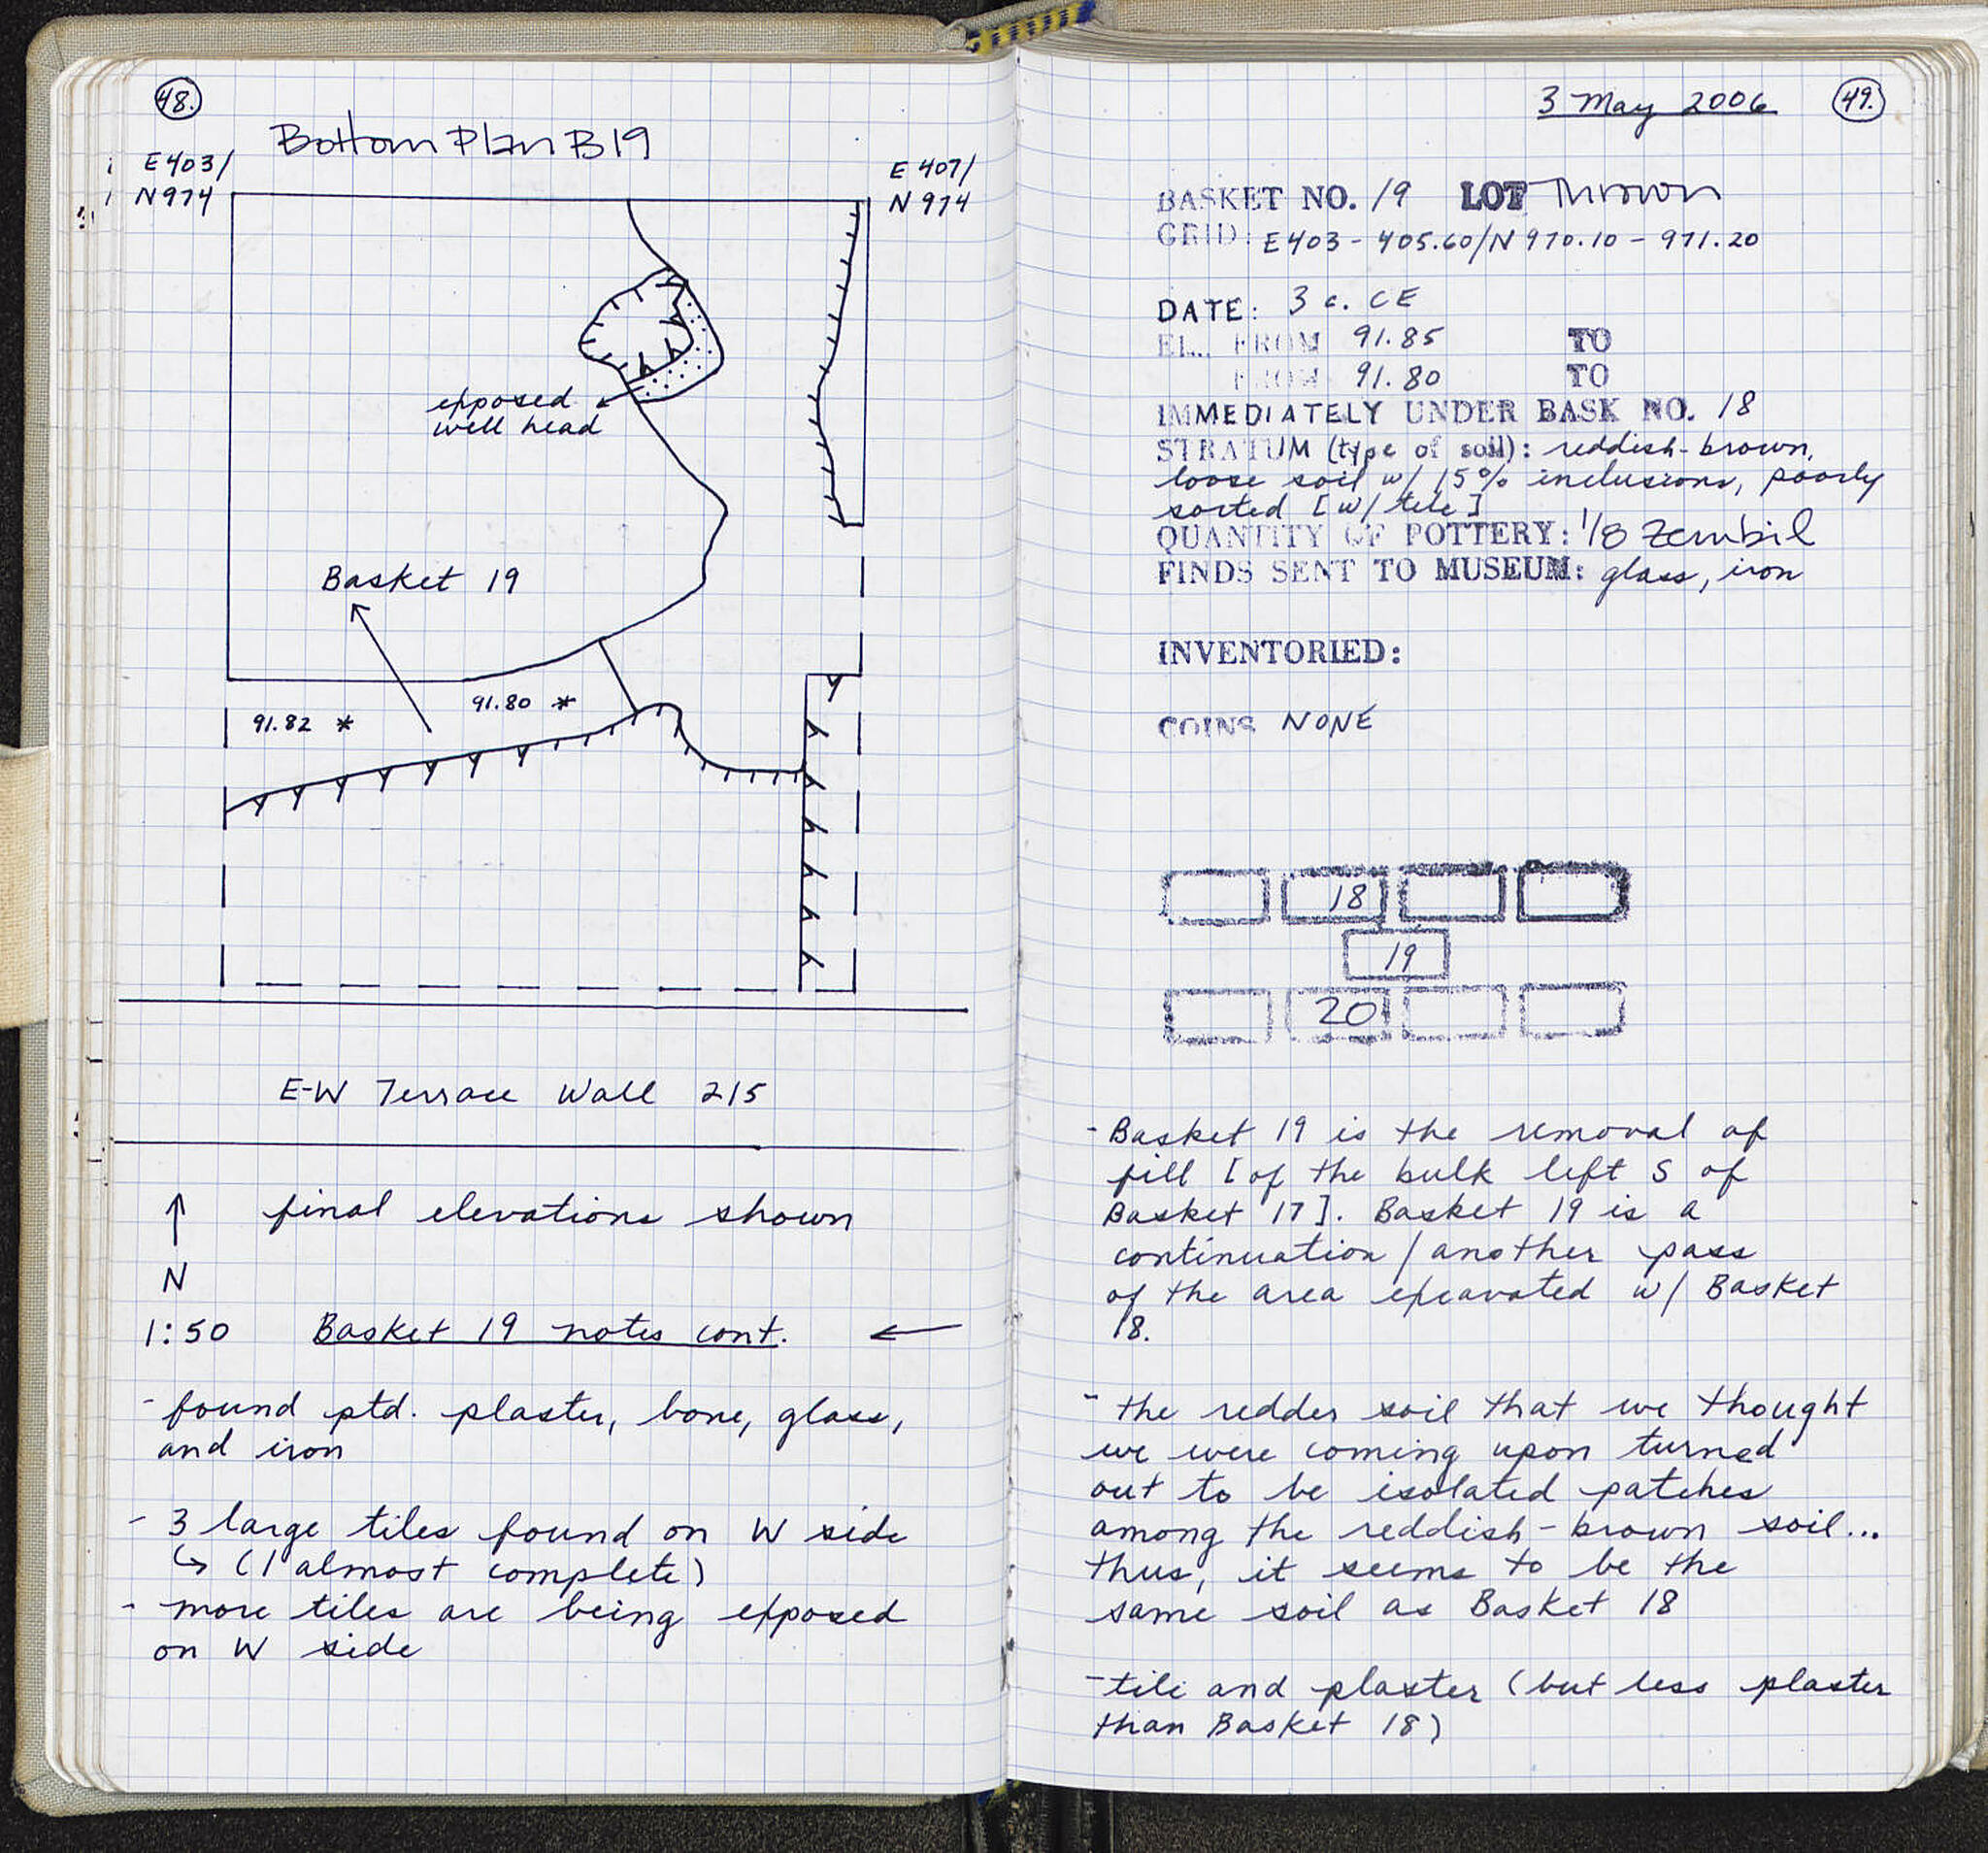 48.
Bottom Plan B19
E 403/
N 974
E 407/
N 974
exposed
well head
Basket 19
91.82 *
91.80 *
E-W Terrace Wall 215
↑
final elevations shown
N
1:50 Basket 19 notes cont. ←
- found ptd. plaster, bone, glass,
and iron
- 3 large tiles found on W side
↳ (1 almost complete)
- more tiles are being exposed
on W side
3 May 2006 49.
BASKET NO. 19 LOT Thrown
GRID: E403 - 405.60/N 970.10 - 971.20
DATE: 3 c. CE
EL. FROM 91.85 TO
FROM 91.80 TO
IMMEDIATELY UNDER BASK NO. 18
STRATUM (type of soil): reddish-brown,
loose soil w/ 15% inclusions, poorly
sorted [w/ tile]
QUANTITY OF POTTERY: 1/8 Zembil
FINDS SENT TO MUSEUM: glass, iron
INVENTORIED:
COINS NONE
18
19
20
- Basket 19 is the removal of
fill [of the bulk left S of
Basket 17]. Basket 19 is a
continuation / another pass
of the area excavated w/ Basket
18.
- the redder soil that we thought
we were coming upon turned
out to be isolated patches
among the reddish-brown soil...
thus, it seems to be the
same soil as Basket 18
- tile and plaster (but less plaster
than Basket 18)